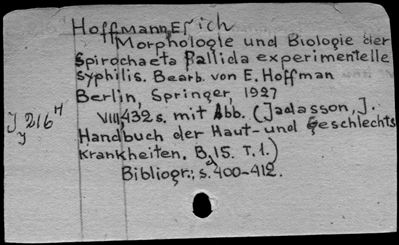 Hoffmann, Erich
Morphologie und Biologie der
Spirochaeta Pallida experimentelle
Syphilis. Bearb. von E. Hoffman
Berlin, Springer, 1927
VIII, 432 s. mit Abb. (Jadasson, J.
Handbuch der Haut- und Geschlechts
Krankheiten. Bd 15. T. 1.)
Bibliogr.; s. 400-412.
J 216 H
y